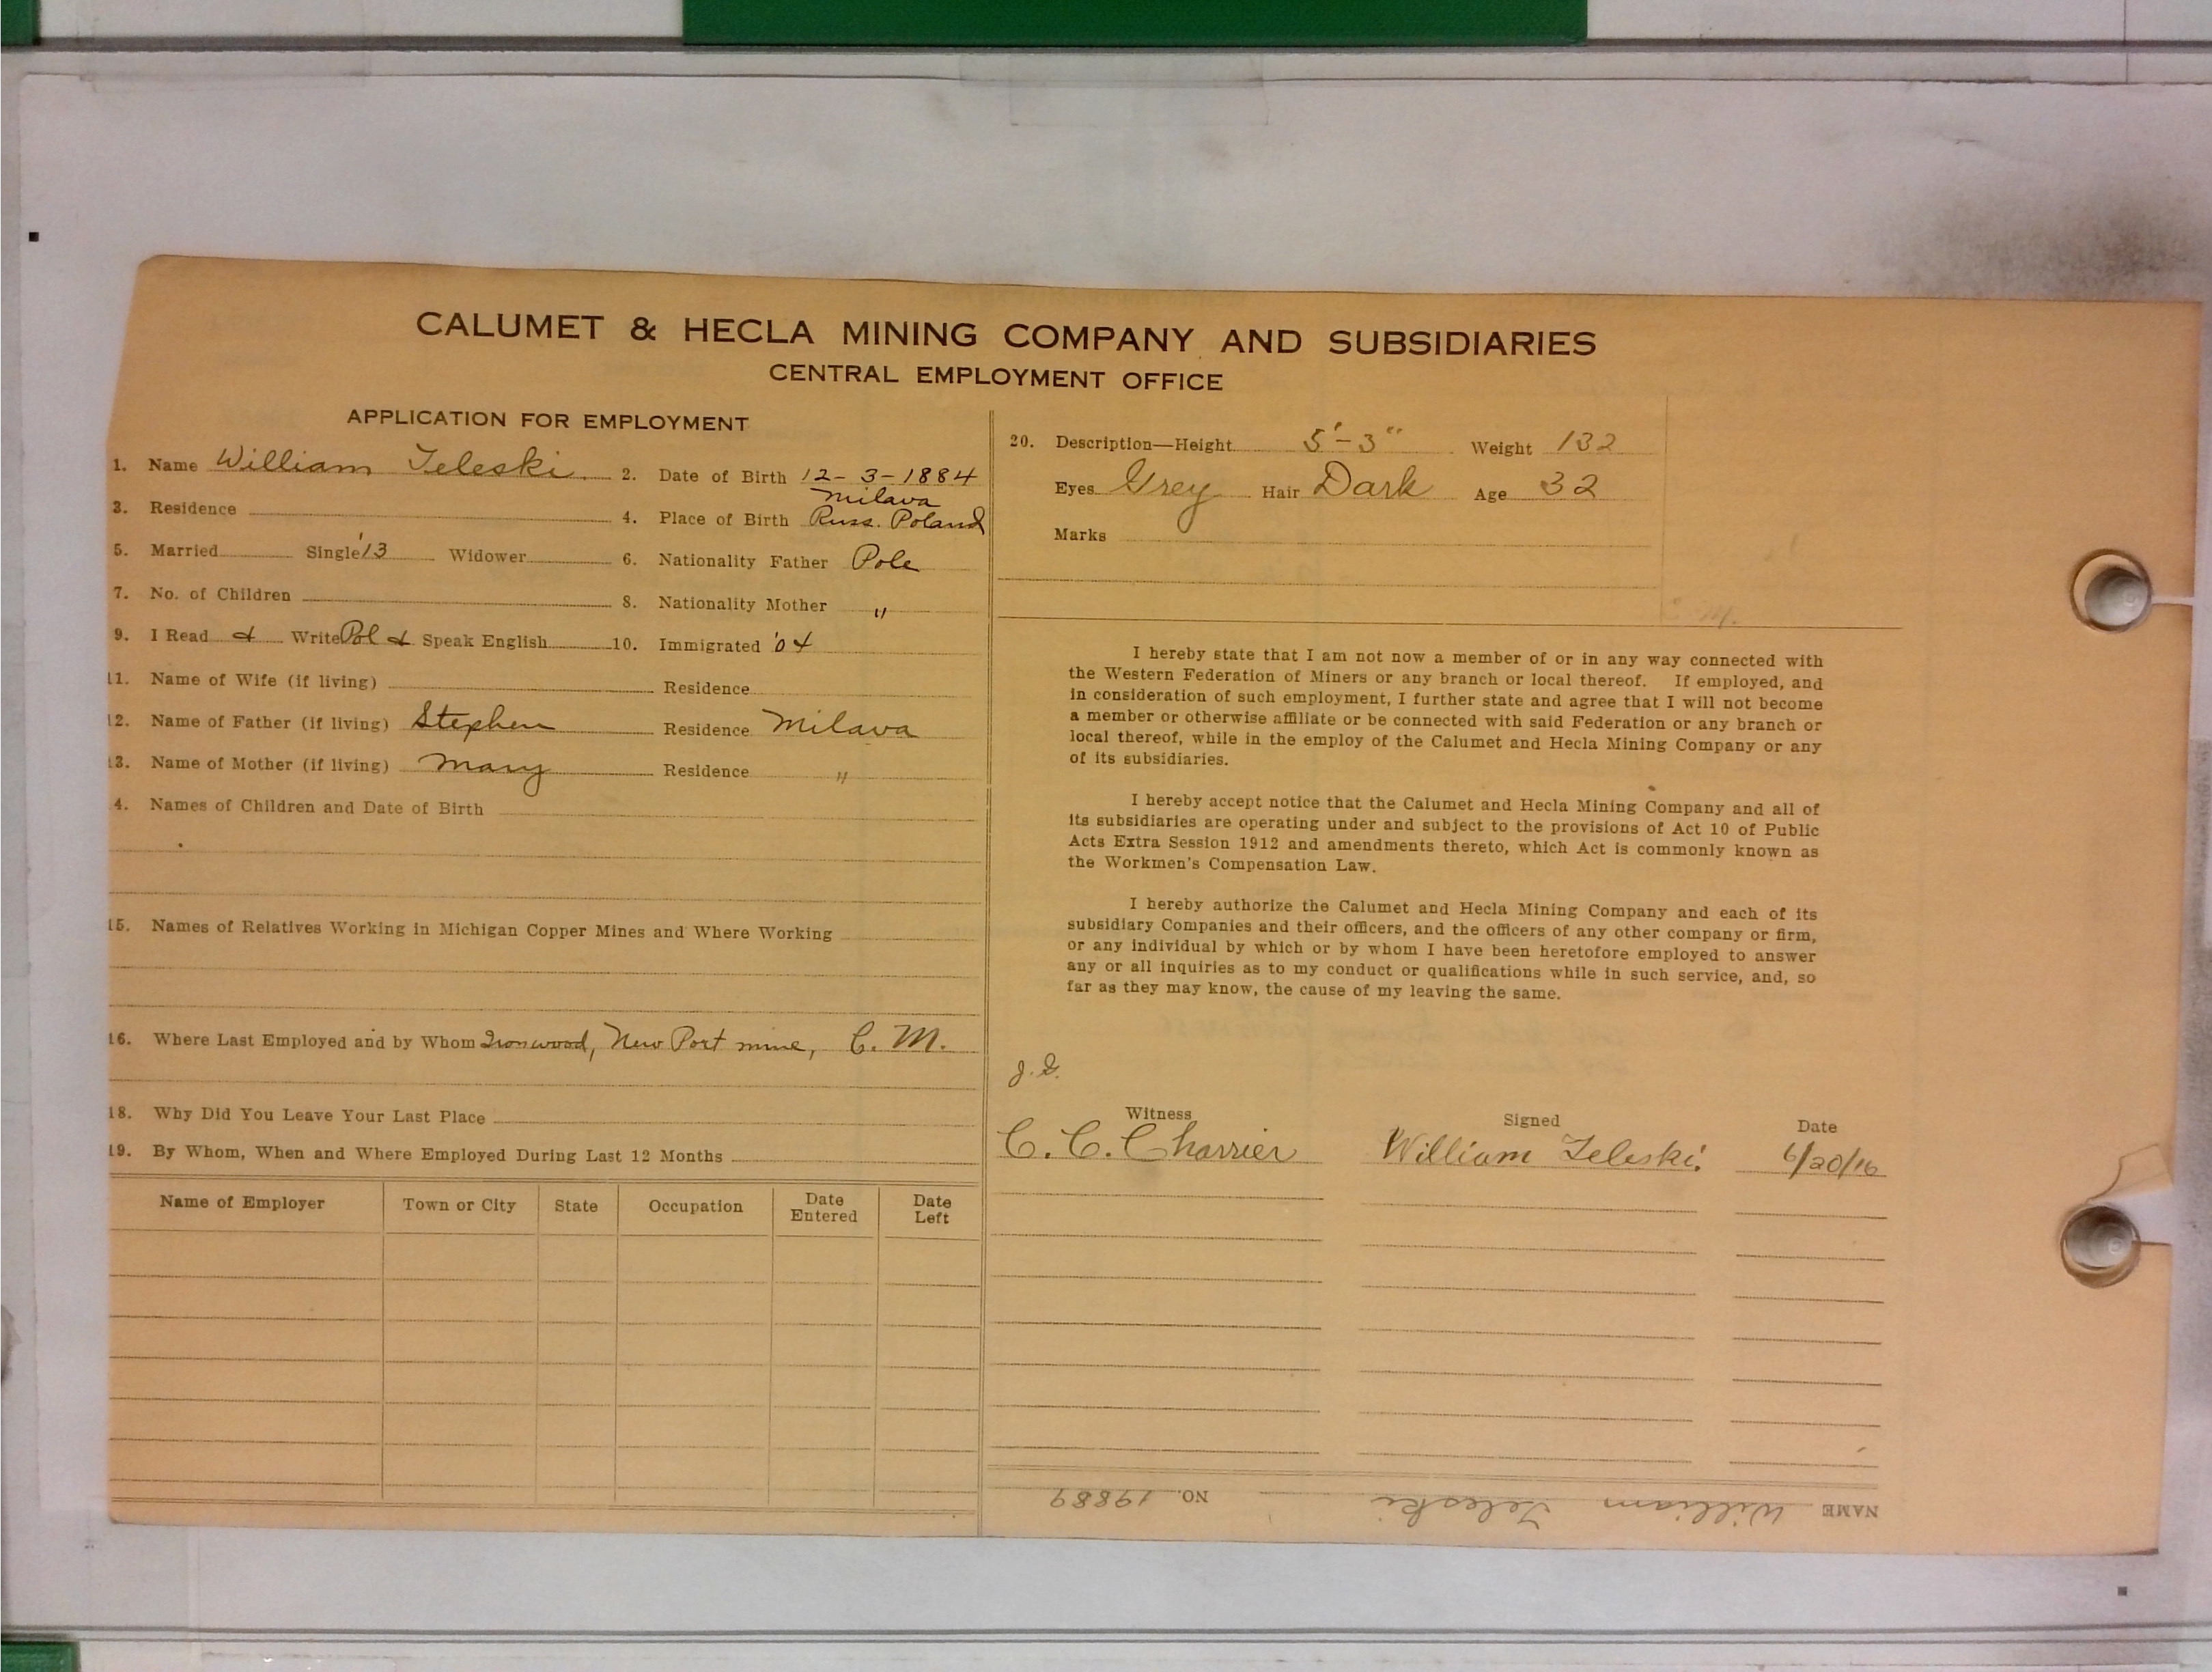 CALUMET & HECLA MINING COMPANY AND SUBSIDIARIES
CENTRAL EMPLOYMENT OFFICE
APPLICATION FOR EMPLOYMENT
1. Name William Teleski 2. Date of Birth 12-3-1884
3. Residence 4. Place of Birth Milava Russ. Poland
5. Married Single '13 Widower 6. Nationality Father Pole
7. No. of Children 8. Nationality Mother "
9. I Read & Write Pol & Speak English 10. Immigrated '04
11. Name of Wife (if living) Residence
12. Name of Father (if living) Stephen Residence Milava
13. Name of Mother (if living) Mary Residence "
4. Names of Children and Date of Birth
15. Names of Relatives Working in Michigan Copper Mines and Where Working
16. Where Last Employed and by Whom Ironwood, New Port mine, C. M.
18. Why Did You Leave Your Last Place
19. By Whom, When and Where Employed During Last 12 Months
Name of Employer Town or City State Occupation Date Entered Date Left
20. Description—Height 5'-3" Weight 132
Eyes Grey Hair Dark Age 32
Marks
I hereby state that I am not now a member of or in any way connected with
the Western Federation of Miners or any branch or local thereof. If employed, and
in consideration of such employment, I further state and agree that I will not become
a member or otherwise affiliate or be connected with said Federation or any branch or
local thereof, while in the employ of the Calumet and Hecla Mining Company or any
of its subsidiaries.
I hereby accept notice that the Calumet and Hecla Mining Company and all of
its subsidiaries are operating under and subject to the provisions of Act 10 of Public
Acts Extra Session 1912 and amendments thereto, which Act is commonly known as
the Workmen's Compensation Law.
I hereby authorize the Calumet and Hecla Mining Company and each of its
subsidiary Companies and their officers, and the officers of any other company or firm,
or any individual by which or by whom I have been heretofore employed to answer
any or all inquiries as to my conduct or qualifications while in such service, and, so
far as they may know, the cause of my leaving the same.
Witness Signed Date
C. C. Charrier William Teleski. 6/20/16
NAME William Teleski NO. 19889